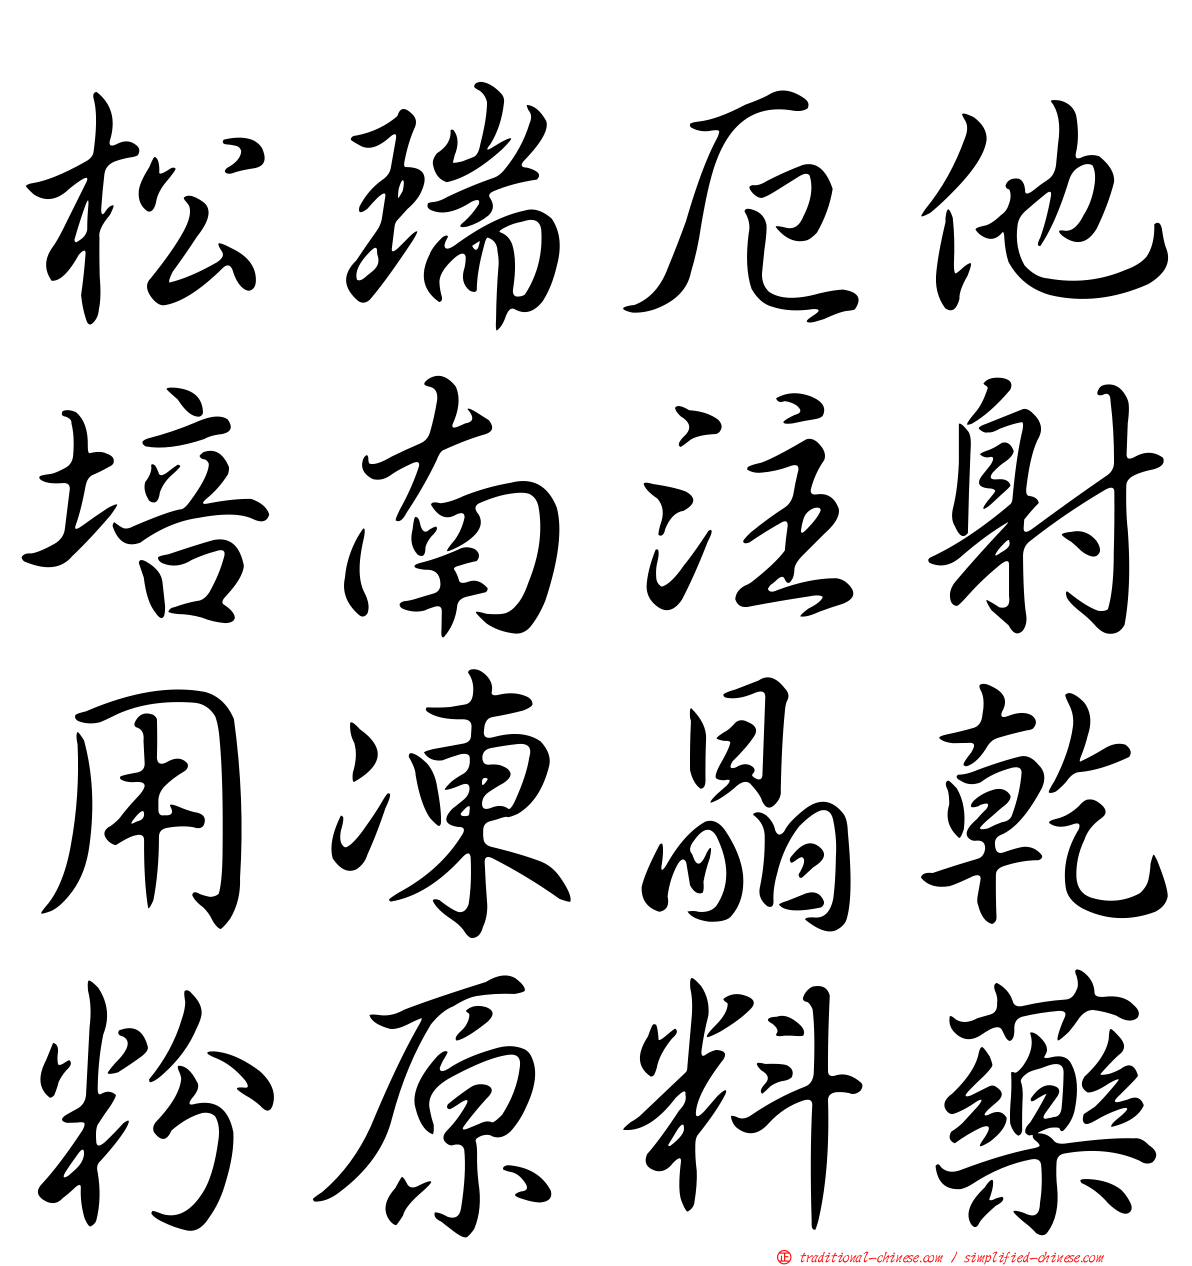 松瑞厄他
培南注射
用凍晶乾
粉原料藥
正 traditional-chinese.com / simplified-chinese.com